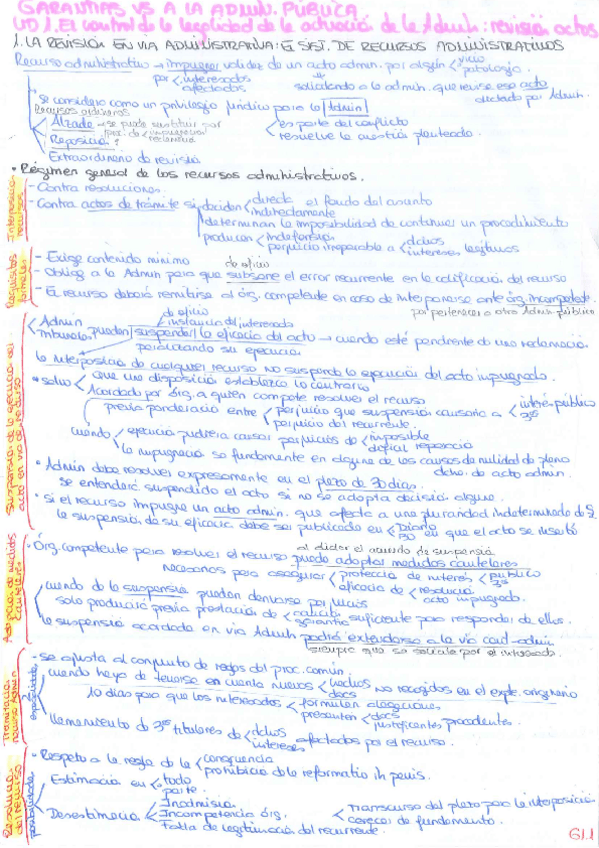 GARANTÍAS VS A LA ADMIN. PÚBLICA
UD 1. El control de la legalidad de la actuación de la Admin: revisión actos
1. LA REVISIÓN EN VIA ADMINISTRATIVA: EL SIST. DE RECURSOS ADMINISTRATIVOS
Recurso administrativo → impugnar validez de un acto admin. por algún < vicio
patología.
por < interesados
afectados
solicitando a la admin. que revise ese acto
dictado por Admin.
se considera como un privilegio jurídico para la Admin
Recursos ordinarios
es parte del conflicto
Alzada → se puede sustituir por
proc. de < impugnación
reclamación
resuelve la cuestión planteada.
Reposición
Extraordinario de revisión
• Régimen general de los recursos administrativos.
Interposición recursos
- Contra resoluciones.
- Contra actos de trámite si deciden < directa
indirectamente
el fondo del asunto
determinan la imposibilidad de continuar un procedimiento
producen < indefensión
perjuicio irreparable a < dchos
intereses legítimos
Requisitos formales
- Exige contenido mínimo
de oficio
- Obliga a la Admin para que subsane el error recurrente en la calificación del recurso
- El recurso deberá remitirse al órg. competente en caso de interponerse ante órg. incompetente
por pertenecer a otra Admin. pública
Suspensión de la ejecución del acto en vía de recurso
de oficio
Admin
instancia del interesado
Tribunales
pueden suspender la eficacia del acto → cuando esté pendiente de una reclamación
paralizando su ejecución
La interposición de cualquier recurso no suspende la ejecución del acto impugnado.
• salvo < que una disposición establezca lo contrario
Acordado por órg. a quien compete resolver el recurso
previa ponderación entre < perjuicio que suspensión causaría a < interés público
3os
perjuicio del recurrente.
cuando < ejecución pudiera causar perjuicios de < imposible
difícil reparación
la impugnación se fundamente en alguna de las causas de nulidad de pleno
dcho. de acto admin.
• Admin debe resolver expresamente en el plazo de 30 días.
Se entenderá suspendido el acto si no se adopta decisión alguna.
• Si el recurso impugna un acto admin. que afecta a una pluralidad indeterminada de
la suspensión de su eficacia debe ser publicada en < Diario
BO en que el acto se insertó
Adopción de medidas cautelares
al dictar el acuerdo de suspensión
• Órg. competente para resolver el recurso puede adoptar medidas cautelares
necesarias para asegurar < protección de interés < público
3os
eficacia de < resolución
acto impugnado.
cuando de la suspensión puedan derivarse perjuicios
solo producirá previa prestación de < caución
garantía suficiente para responder de ellos.
la suspensión acordada en vía Admin podrá extenderse a la vía cont-admin
siempre que se solicite por el interesado.
Tramitación recurso Admin
especialidades
- se ajusta al conjunto de reglas del proc. común.
cuando haya de tenerse en cuenta nuevos < hechos
docs no recogidos en el expte. originario
10 días para que los interesados < formulen alegaciones
presenten < docs
justificantes procedentes.
llamamiento de 3os titulares de < dchos
intereses afectados por el recurso.
Resolución del recurso
posibilidades
- Respeto a la regla de la < congruencia
prohibición de la reformatio in peius.
Estimación en < todo
parte.
Desestimación
Inadmisión
Incompetencia órg.
Falta de legitimación del recurrente.
transcurso del plazo para la interposición
carecer de fundamento.
G1.1